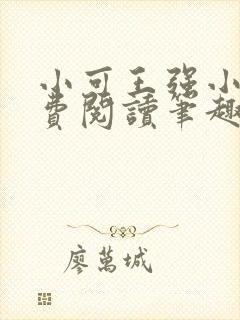 小可王强小
費閱讀筆趣
廖萬城